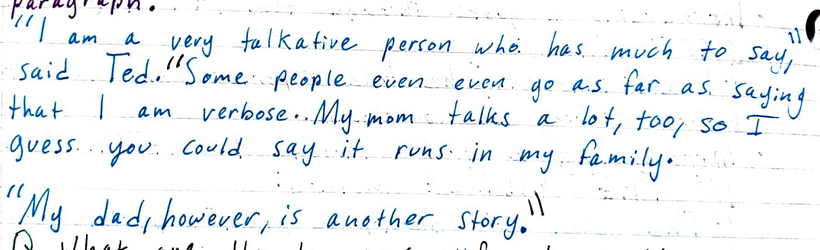 paragraph.
"I am a very talkative person who has much to say,"
said Ted. "Some people even even go as far as saying
that I am verbose. My mom talks a lot, too, so I
guess you could say it runs in my family.
"My dad, however, is another story."